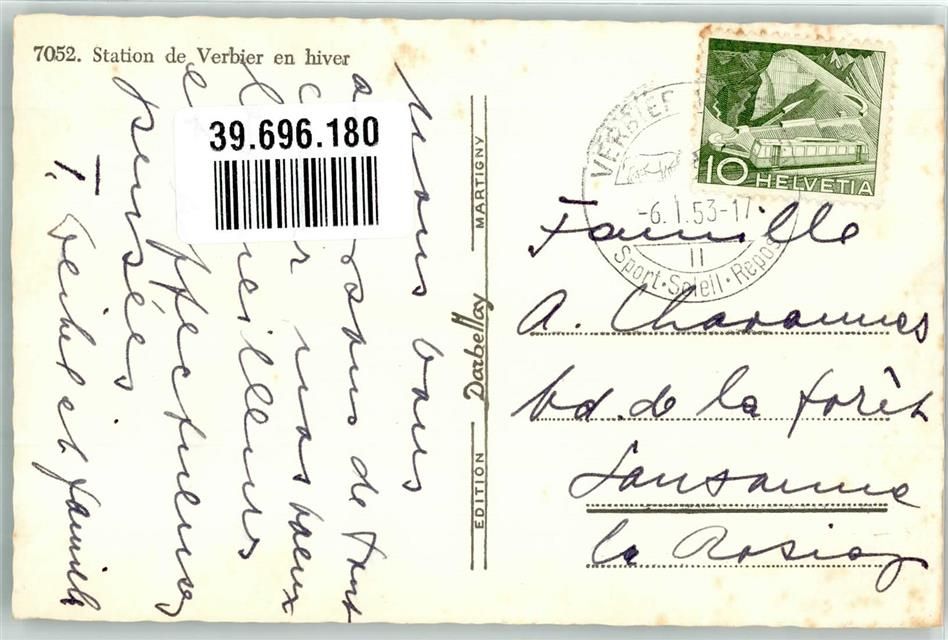 7052. Station de Verbier en hiver
39.696.180
Nous vous
de tout
nos voeux
meilleurs
affectueuses
pensées
T. et famille
EDITION Darbellay MARTIGNY
VERBIER
-6.1.53-17
II
Sport·Soleil·Repos
10 HELVETIA
Famille
A. Chavannes
bd. de la forêt
Lausanne
la Rosiaz